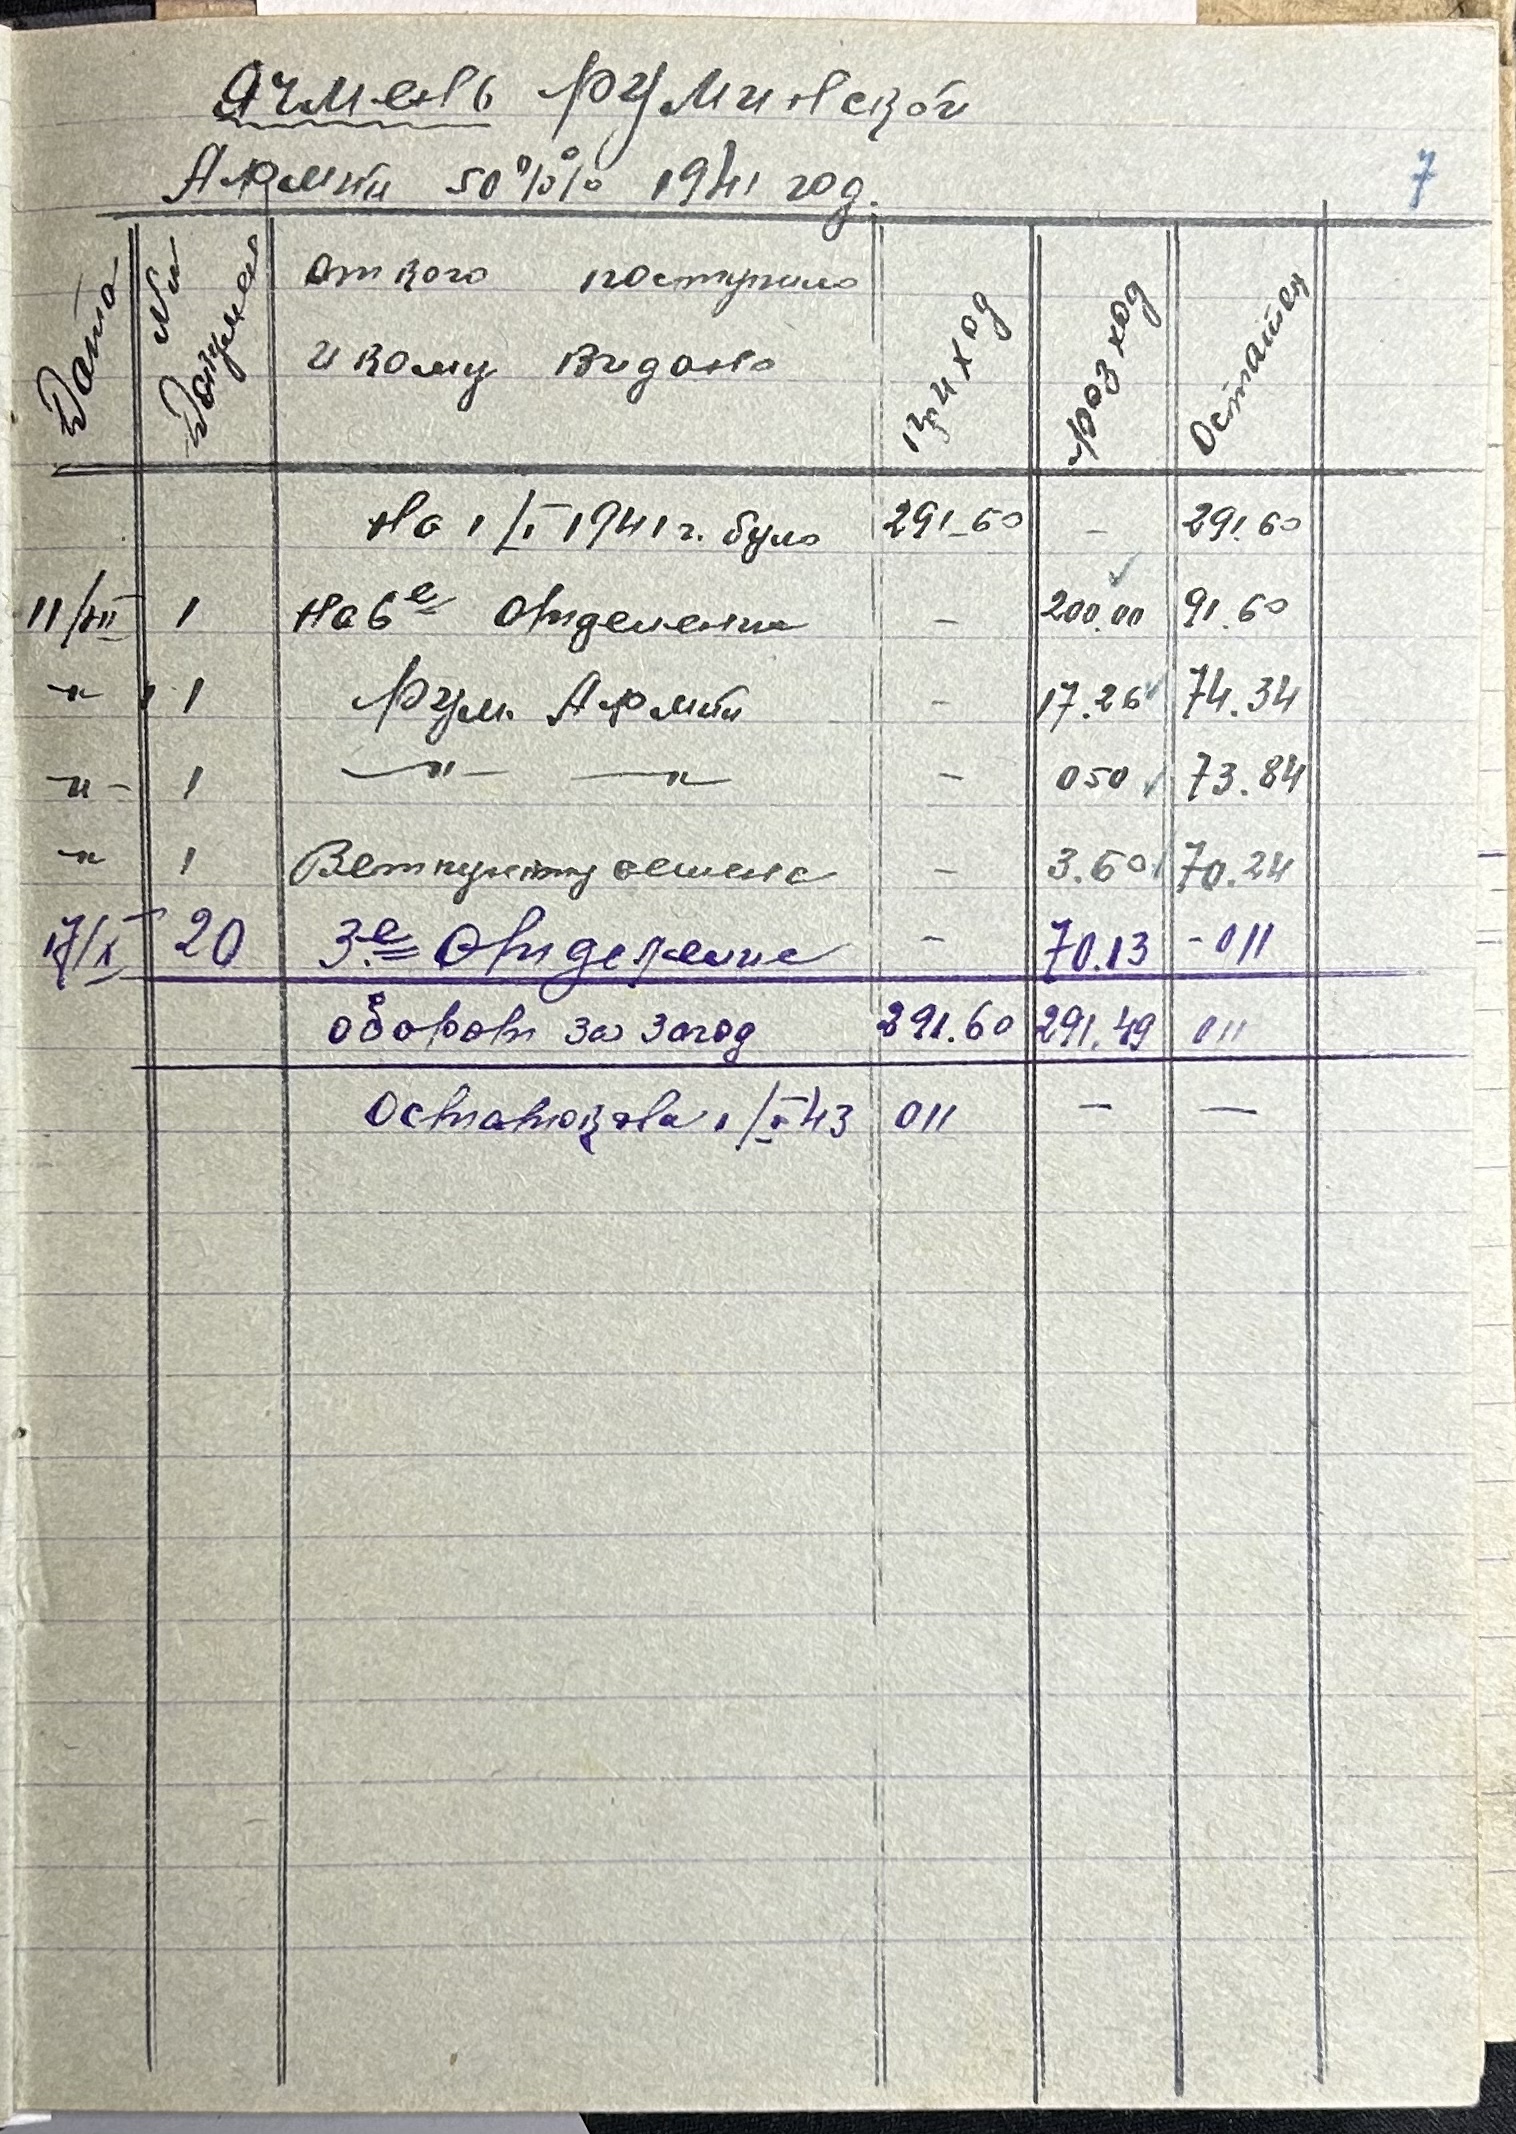 Ячмень румиской
Армии 50% 1941 год.
7
Дата
№№ Докумен
от кого поступило
и кому видано
приход
розход
Остаток
На 1/I 1941 г. було 291-60 - 291.60
11/VII 1 На 6е отделение - 200.00 91.60
-"- 1 Рум. Армии - 17.26 74.34
-"- 1 -"- -"- - 050 73.84
-"- 1 Ветпункту - 3.60 70.24
17/X 20 3.е Отделение - 70.13 - 011
оборот за год 291.60 291.49 011
Остаток на 1/I 43 011 - -